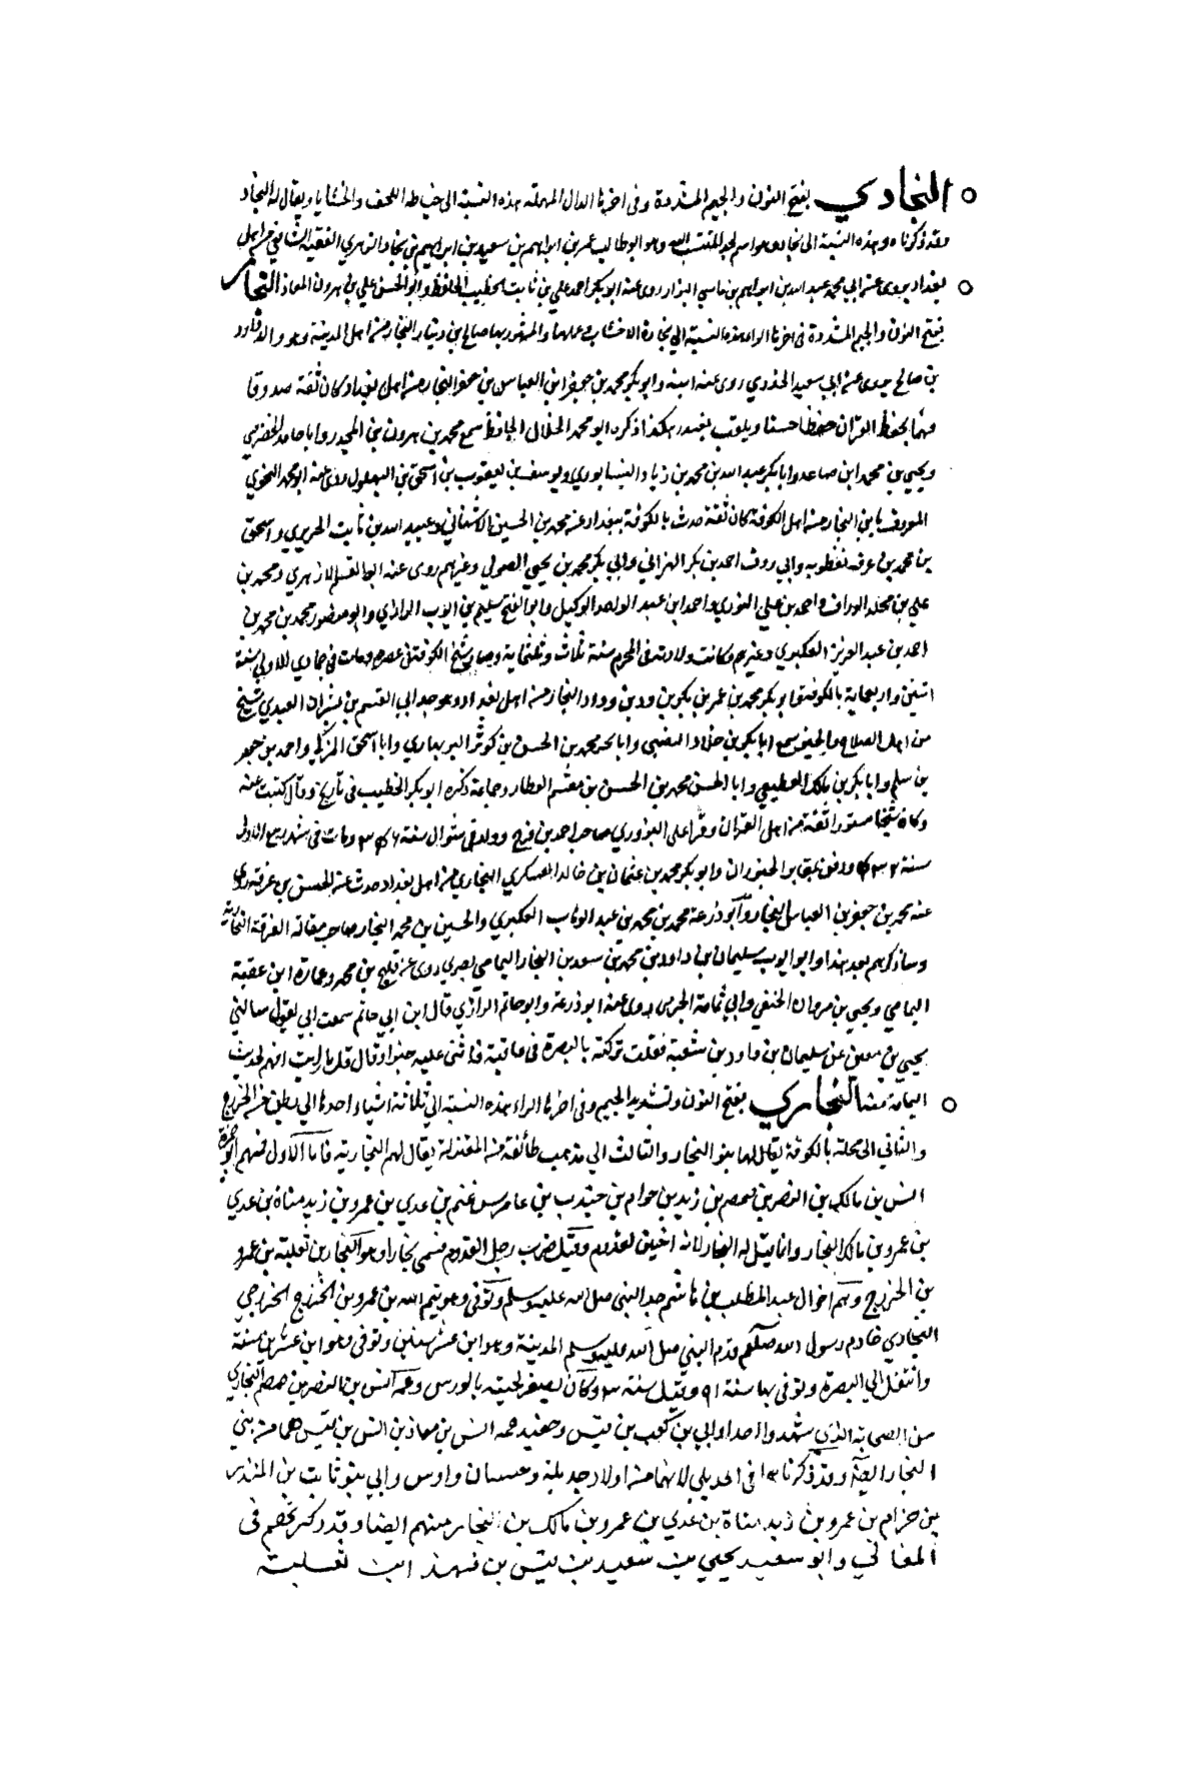 النجادي بفتح النون والجيم المشددة وفى اخرها الدال المهملة هذه النسبة الى خياطه اللحف والحشايا ويقال له النجاد
وقد ذكرناه وهذه النسبة الى نجاد وهو اسم لجد المنتسب اليه وهو ابو طالب عمر بن ابراهيم بن سعيد بن ابراهيم بن نجاد الزهري الفقيه الشافعي من اهل
بغداد يروى عن ابي محمد عبد الله بن ابراهيم بن ماسي البزاز روى عنه ابو بكر احمد بن علي بن ثابت الخطيب الحافظ وابو الحسن علي بن هرون المعاذ النجار
بفتح النون والجيم المشددة فى اخرها الراء هذه النسبة الى نجارة الاخشاب وعملها والمشهور بها صالح بن دينار النجار من اهل المدينة وهو والد داود
بن صالح يروى عن ابي سعيد الخدري روى عنه ابنه وابو بكر محمد بن جعفر ابن العباس بن جعفر النجار من اهل بغداد كان ثقة صدوقا
فهما يحفظ القران حفظا حسنا ويلقب بغندر هكذا ذكره ابو محمد الخلال الحافظ سمع محمد بن هرون بن المجدر وابا حامد الحضرمي
ويحيى بن محمد ابن صاعد وابا بكر عبد الله بن محمد بن زياد النيسابوري ويوسف بن يعقوب بن اسحق بن البهلول روى عنه ابو محمد النحوي
المعروف بابن النجار من اهل الكوفة كان ثقة حدث بالكوفة ببغداد عن محمد بن الحسين الاشناني وعبيد الله بن ثابت الحريري واسحق
بن محمد بن عرفه نفطويه وابي روق احمد بن بكر الهزاني وابي بكر محمد بن يحيى الصولي وغيرهم روى عنه ابو القسم الازهري ومحمد بن
علي بن مخلد الوراق واحمد بن علي التوزي واحمد ابن عبد الواحد الوكيل وابو الفتح سليم بن ايوب الرازي وابو منصور محمد بن محمد بن
احمد بن عبد العزيز العكبري وغيرهم وكانت ولادته فى المحرم سنة ثلاث وثلثماية وصار شيخ الكوفة فى عصره ومات فى جمادي الاولى سنة
اثنين واربعماية بالكوفة وابو بكر محمد بن عمر بن بكير بن ود بن وداد النجار من اهل بغداد وهو جد ابي القسم بن بشران العبدي شيخ
من اهل الصلاح والخير سمع ابا بكر بن خلاد النصيبي وابا بحر محمد بن الحسن بن كوثر البربهاري وابا اسحق المزكي واحمد بن جعفر
بن سلم وابا بكر بن مالك القطيعي وابا الحسن محمد بن الحسن بن مقسم العطار وجماعة ذكره ابو بكر الخطيب فى تاريخه وقال كتبت عنه
وكان شيخا مستورا ثقة من اهل القران وقرا على البزوري صاحب احمد بن فرح وولد فى شوال سنة ٣٤٦ ومات فى شهر ربيع الاول
سنة ٤٣٢ ودفن بمقابر الخيزران وابو بكر محمد بن عثمان بن خالد العسكري النجاري من اهل بغداد حدث عن الحسن بن عرفة روى
عنه محمد بن جعفر بن العباس النجار وابو زرعة محمد بن محمد بن عبد الوهاب العكبري والحسين بن محمد النجار صاحب مقالة الفرقة النجارية
وساذكرهم بعد هذا وابو ايوب سليمان بن داود بن محمد بن سعد بن النجار اليمامي بصري روى عن فليح بن محمد وعمارة ابن عقبة
اليمامي ويحيى بن مروان الحنفي وابي ثمامة الجرمي روى عنه ابو زرعة وابو حاتم الرازي قال ابن ابي حاتم سمعت ابي يقول سالني
يحيى بن معين عن سليمان بن داود بن شعبة فقلت تركته بالبصرة فى عافية فاثنى عليه خيرا وقال قل ما رايت افهم لحديث
اليمامة منه النجاري بفتح النون وتشديد الجيم وفى اخرها الراء هذه النسبة الى ثلاثة اشياء احدها الى بطن من الخزرج
والثاني الى محلة بالكوفة يقال لها بنو النجار والثالث الى مذهب طائفة من المعتزلة يقال لهم النجارية فاما الاول فمنهم ابو حمزة
انس بن مالك بن النضر بن ضمضم بن زيد بن حرام بن جندب بن عامر بن غنم بن عدي بن عمرو بن زيد مناة بن عدي
بن عمرو بن مالك النجار وانما قيل له النجار لانه اختتن بقدوم وقيل ضرب رجل القدوم فسمى نجارا وهو النجار بن ثعلبة بن عمرو
بن الخزرج وهم اخوال عبد المطلب بن هاشم جد النبي صلى الله عليه وسلم وتوفى وهو تيم الله بن عمرو بن الخزرج الخزرجي
النجاري خادم رسول الله صلعم قدم النبي صلى الله عليه وسلم المدينة وهو ابن عشر سنين وتوفى وهو ابن عشرين سنة
وانتقل الى البصرة وتوفى بها سنة ٩١ وقيل سنة ٩٣ وكان يصفر لحيته بالورس وعمه انس بن النضر بن ضمضم النجاري
من الصحابة الذين شهدوا احدا وابي بن كعب بن قيس وحفيد عمه انس بن معاذ بن انس بن قيس هما من بني
النجار ايضا وقد ذكرناهما فى الحديلي لانهما من اولاد جديلة وحسان واوس وابي بنو ثابت بن المنذر
بن حرام بن عمرو بن زيد مناة بن عدي بن عمرو بن مالك بن النجار منهم ايضا وقد ذكر بعضهم فى
المغالي وابو سعيد يحيى بن سعيد بن قيس بن فهد ابن ثعلبة